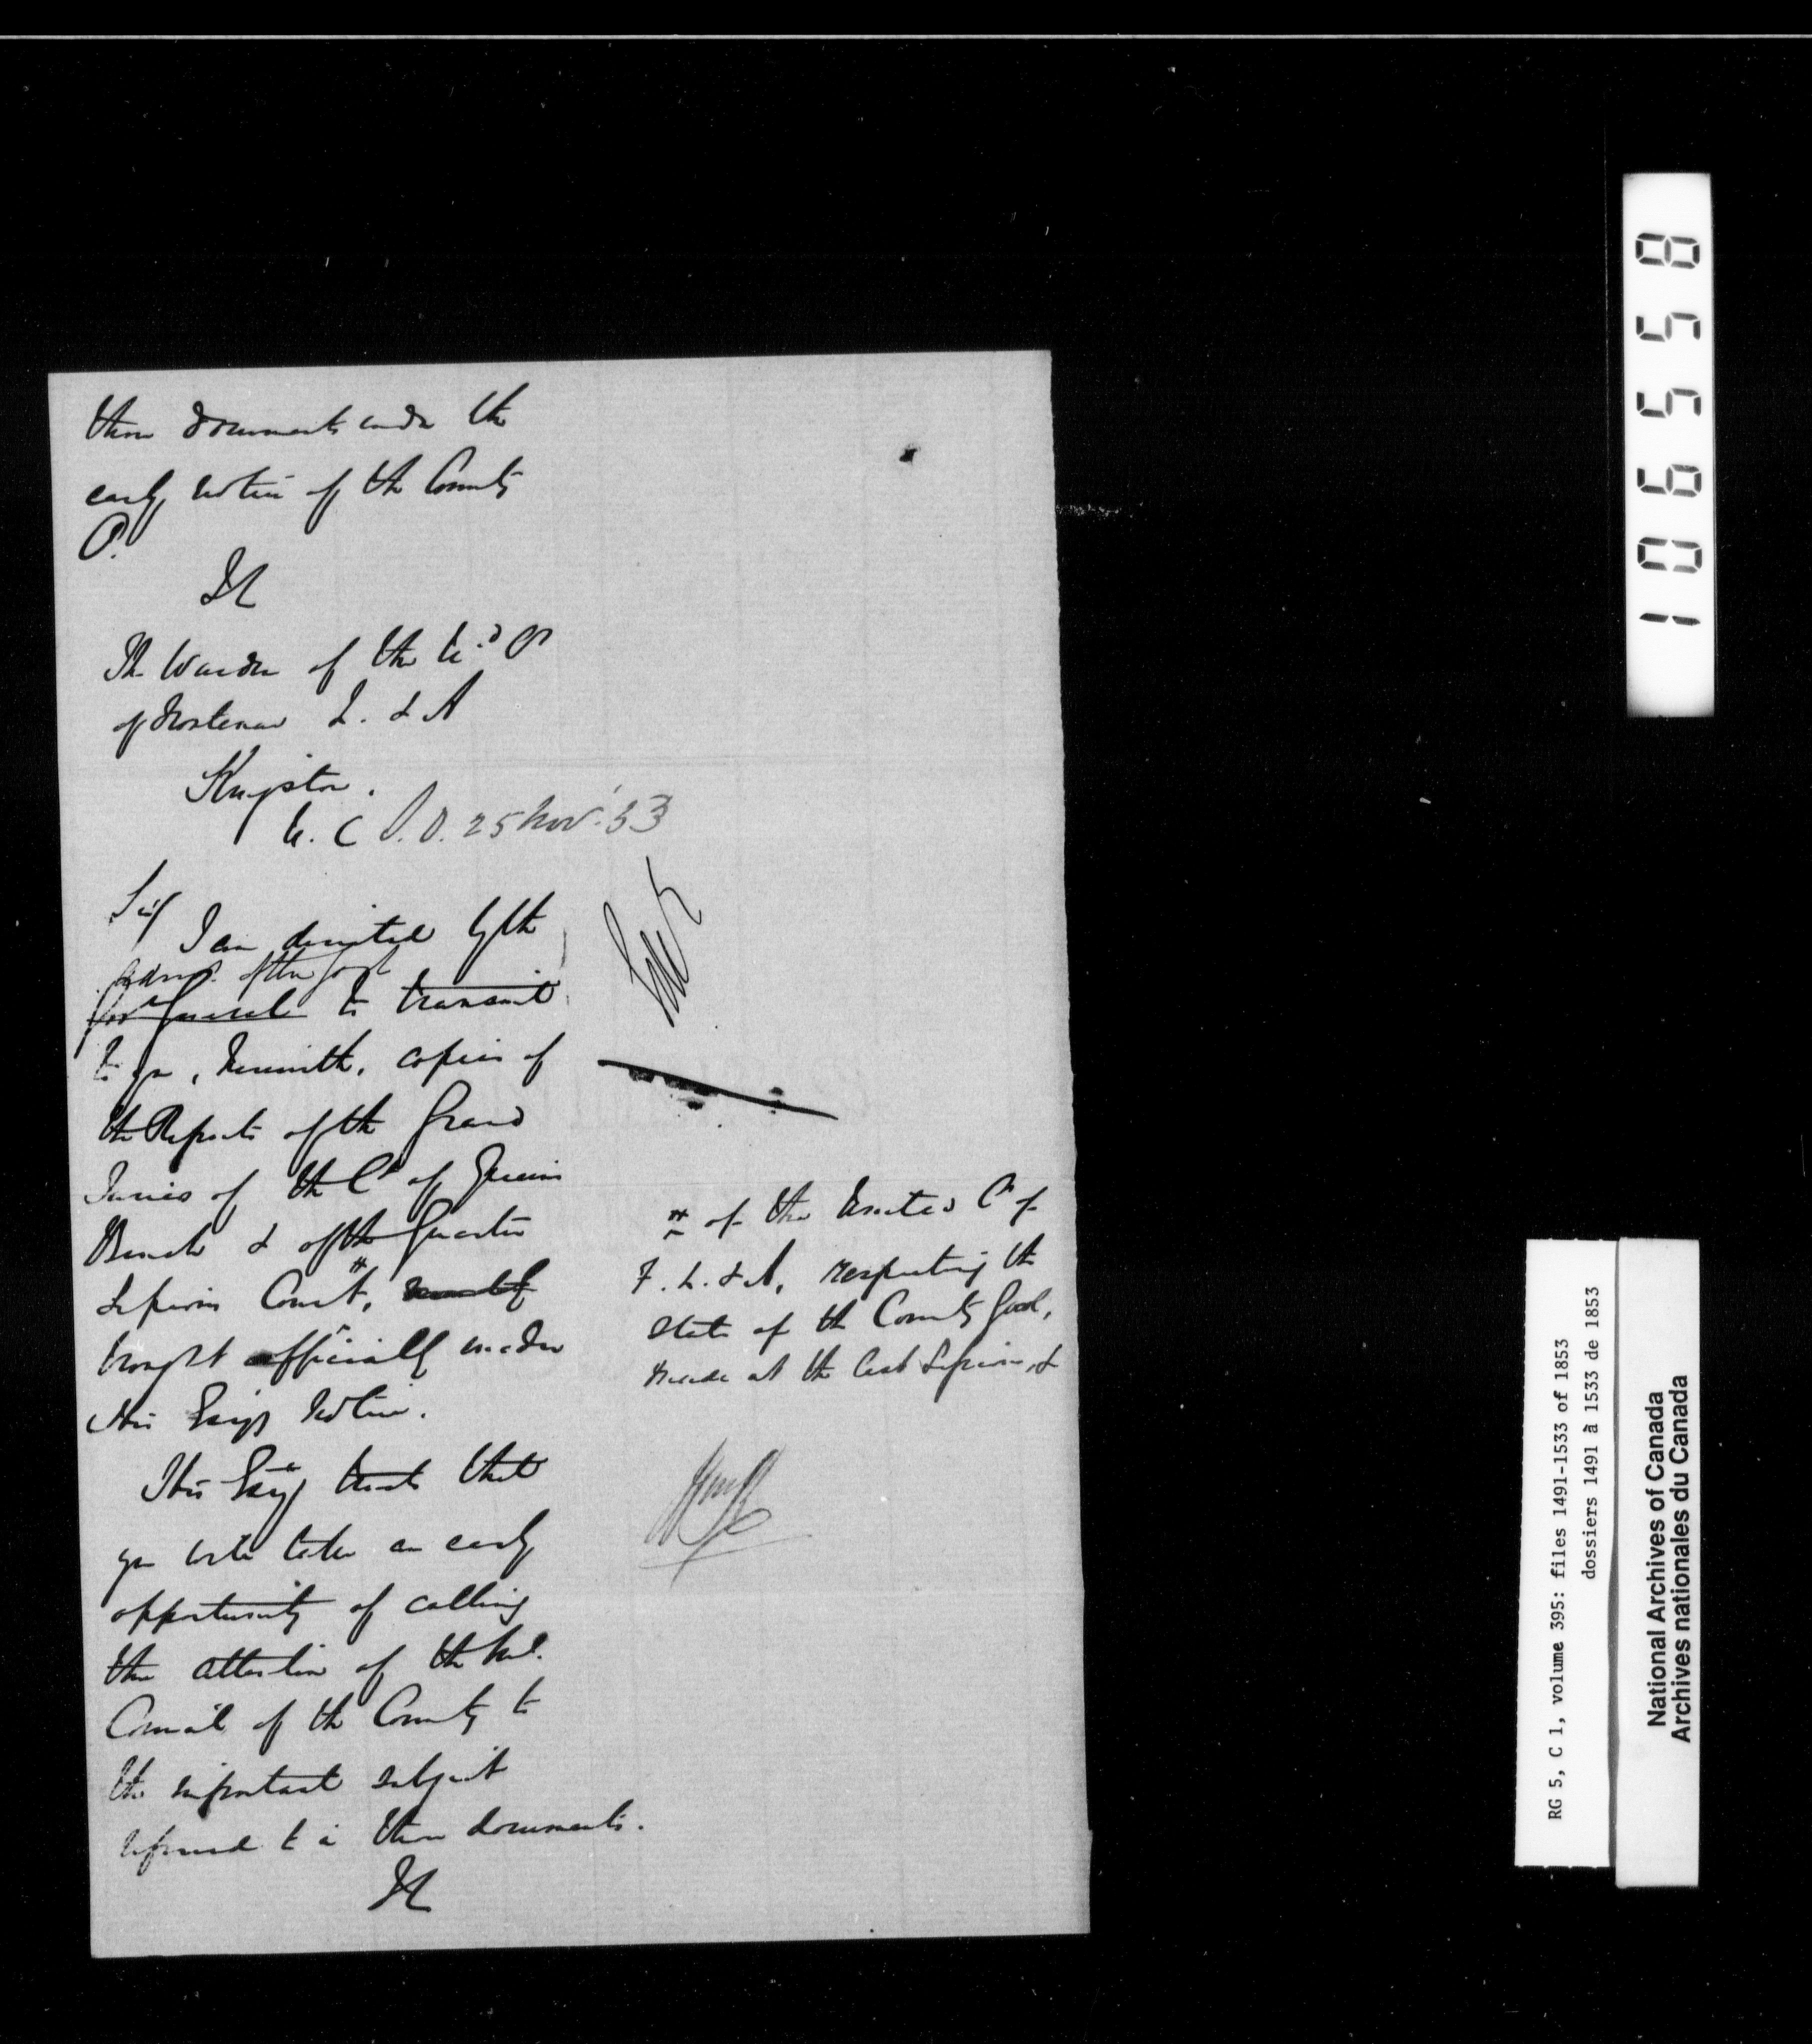 these documents under the
early notice of the County
C.
The Warden of the Ud Cs
of Frontenac L. & A
Kingston.
U. C S.O. 25 Nov. '53
Sir
I am directed by the
Admr. of the Govt
Govr General to transmit
to you, herewith, copies of
the Reports of the Grand
Juries of the Ct of Queens
Bench & of the Quarter
Sessions Court,
brought officially under
His Excys notice.
# of the United Cs of
F. L. & A, respecting the
state of the County Gaol,
made at the last Sessions, &
His Excy trusts that
you will take an early
opportunity of calling
the attention of the Mul.
Council of the County to
the important subject
referred to in these documents.
1065558
RG 5, C 1, volume 395: files 1491-1533 of 1853
dossiers 1491 à 1533 de 1853
National Archives of Canada
Archives nationales du Canada